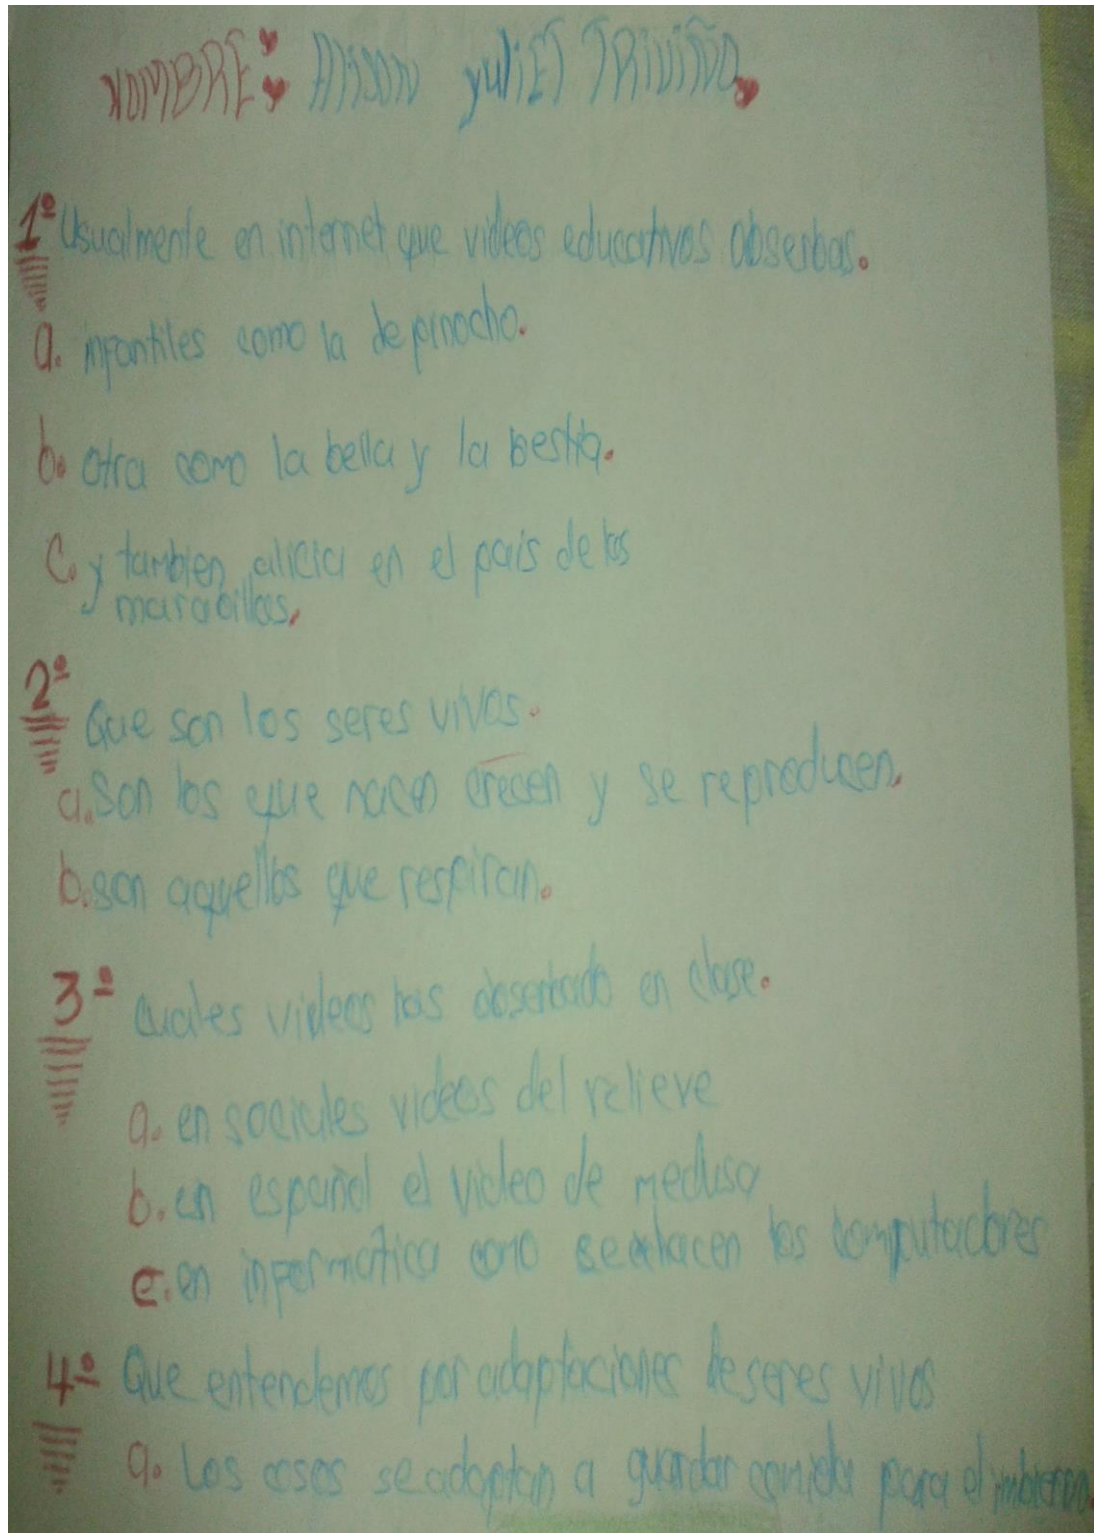 NOMBRE: Alison yuliET TRiViÑo.
1º Usualmente en internet que videos educativos obserbas.
a. infantiles como la de pinocho.
b. otra como la bella y la bestia.
c. y tambien alicia en el pais de las
marabillas.
2º Que son los seres vivos.
a. Son los que nacen crecen y se reproducen.
b. son aquellos que respiran.
3º cuales videos has obserbado en clase.
a. en sociales videos del relieve
b. en español el video de medusa
c. en informatica como se hacen los computadores
4º Que entendemos por adaptaciones de seres vivos
a. Los osos se adaptan a guardar comida para el imbierno.